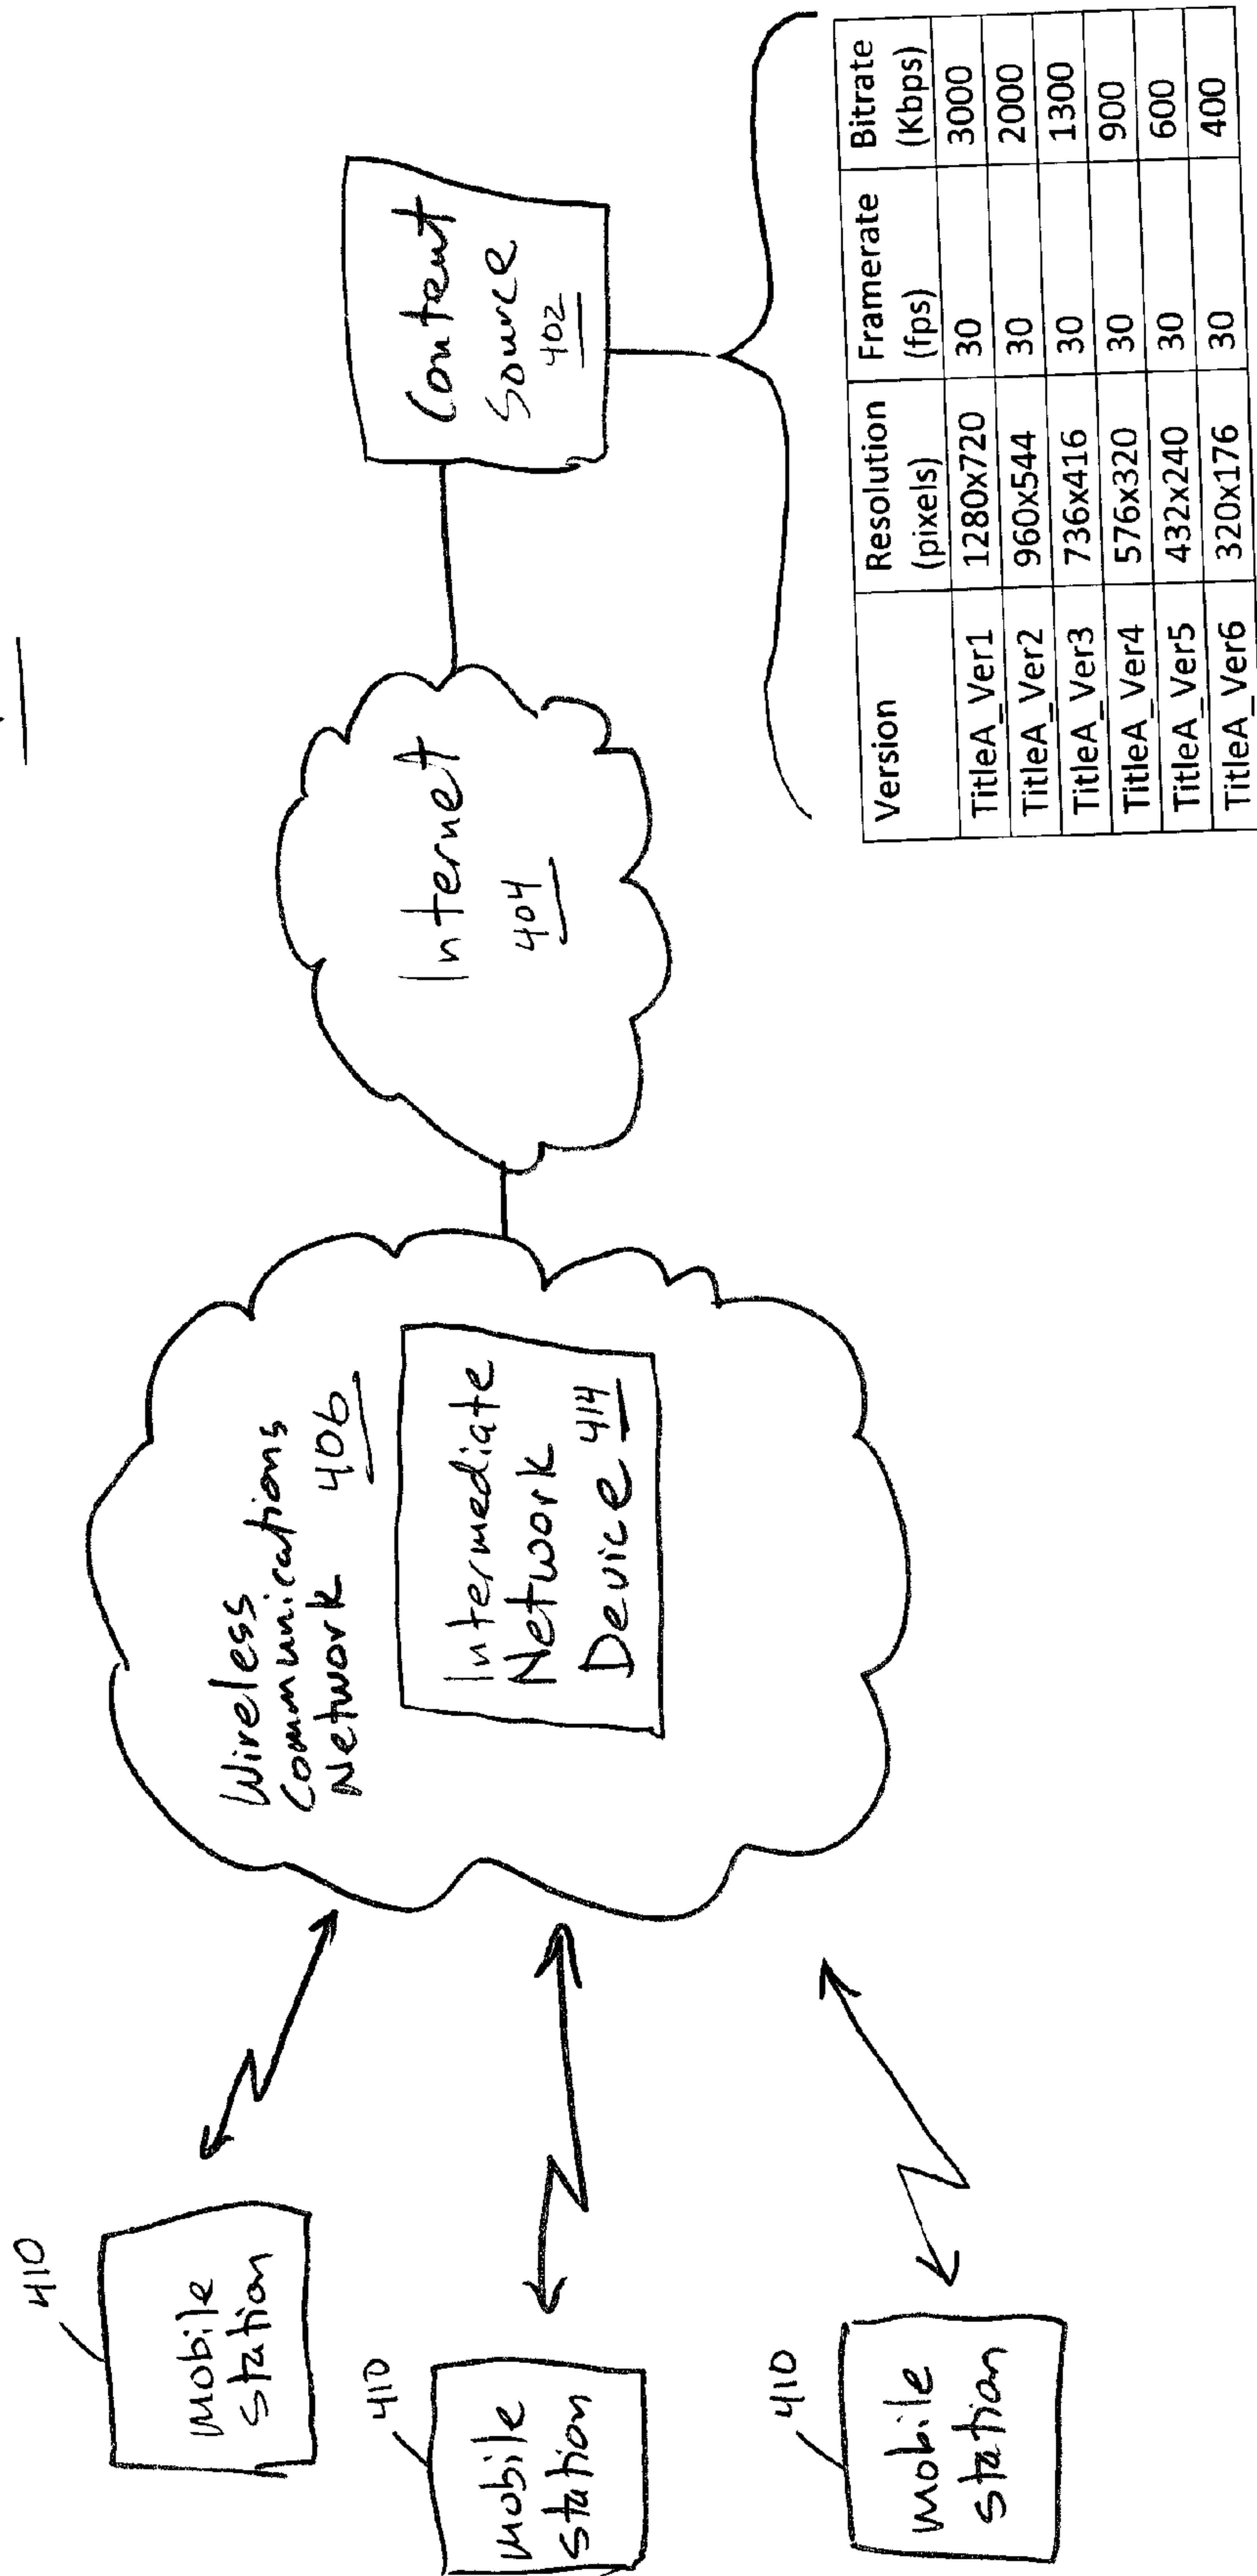 410
mobile
station
410
mobile
station
410
mobile
station
Wireless
Communications
Network 406
Intermediate
Network
Device 414
Internet
404
Content
Source
402
Version Resolution (pixels) Framerate (fps) Bitrate (Kbps)
TitleA_Ver1 1280x720 30 3000
TitleA_Ver2 960x544 30 2000
TitleA_Ver3 736x416 30 1300
TitleA_Ver4 576x320 30 900
TitleA_Ver5 432x240 30 600
TitleA_Ver6 320x176 30 400